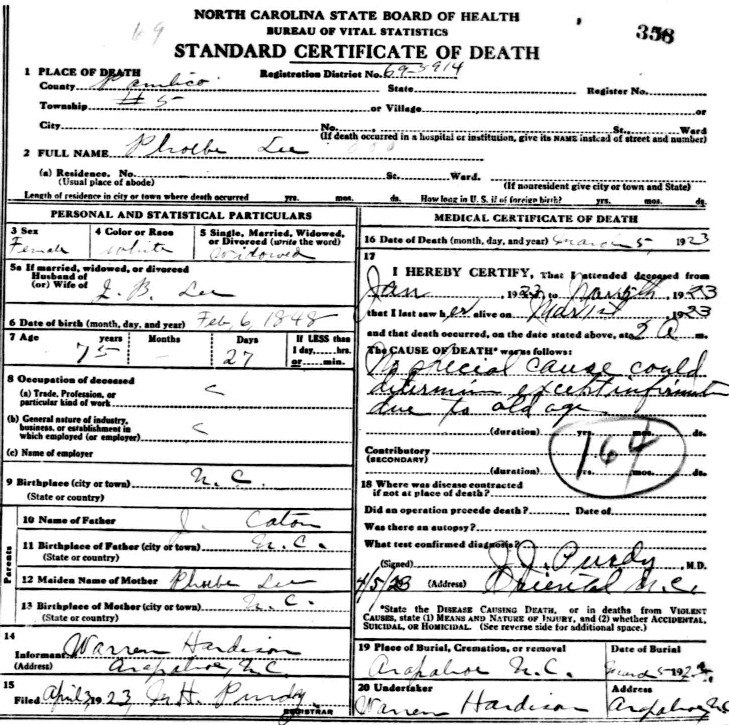 69
NORTH CAROLINA STATE BOARD OF HEALTH
BUREAU OF VITAL STATISTICS
358
STANDARD CERTIFICATE OF DEATH
1 PLACE OF DEATH Registration District No. 69-3914
County Pamlico State Register No.
Township #5 or Village or
City No. St., Ward
(If death occurred in a hospital or institution, give its NAME instead of street and number)
2 FULL NAME Phoebe Lee
(a) Residence. No. St. Ward.
(Usual place of abode) (If nonresident give city or town and State)
Length of residence in city or town where death occurred yrs. mos. ds. How long in U. S. if of foreign birth? yrs. mos. ds.
PERSONAL AND STATISTICAL PARTICULARS
3 Sex 4 Color or Race 5 Single, Married, Widowed, or Divorced (write the word)
Female white widowed
5a If married, widowed, or divorced
Husband of
(or) Wife of J. B. Lee
6 Date of birth (month, day, and year) Feb, 6, 1848
7 Age years Months Days If LESS than
75 — 27 1 day, hrs.
or min.
8 Occupation of deceased
(a) Trade, Profession, or
particular kind of work
(b) General nature of industry,
business, or establishment in
which employed (or employer)
(c) Name of employer
9 Birthplace (city or town) N. C.
(State or country)
Parents
10 Name of Father J. Caton
11 Birthplace of Father (city or town) N. C.
(State or country)
12 Maiden Name of Mother Phoebe Lee
13 Birthplace of Mother (city or town) N. C.
(State or country)
14
Informant Warren Hardison
(Address) Arapahoe, N.C.
15
Filed April 3, 1923 Purdy
REGISTRAR
MEDICAL CERTIFICATE OF DEATH
16 Date of Death (month, day, and year) March 5, 1923
17
I HEREBY CERTIFY, That I attended deceased from
Jan 1923 to 1923
that I last saw her alive on 1923
and that death occurred, on the date stated above, at 2 a m.
The CAUSE OF DEATH* was as follows:
No special cause could
determin except
due to old age
(duration) yrs. mos. ds.
164
Contributory
(SECONDARY)
(duration) yrs. mos. ds.
18 Where was disease contracted
if not at place of death?
Did an operation precede death? Date of
Was there an autopsy?
What test confirmed diagnosis?
(Signed) J. J. Purdy, M.D.
4/5/23 (Address) Oriental N.C.
*State the DISEASE CAUSING DEATH, or in deaths from VIOLENT
CAUSES, state (1) MEANS AND NATURE OF INJURY, and (2) whether ACCIDENTAL,
SUICIDAL, OR HOMICIDAL. (See reverse side for additional space.)
19 Place of Burial, Cremation, or removal Date of Burial
Arapahoe N.C. March 5 1923
20 Undertaker Address
Warren Hardison Arapahoe, N.C.